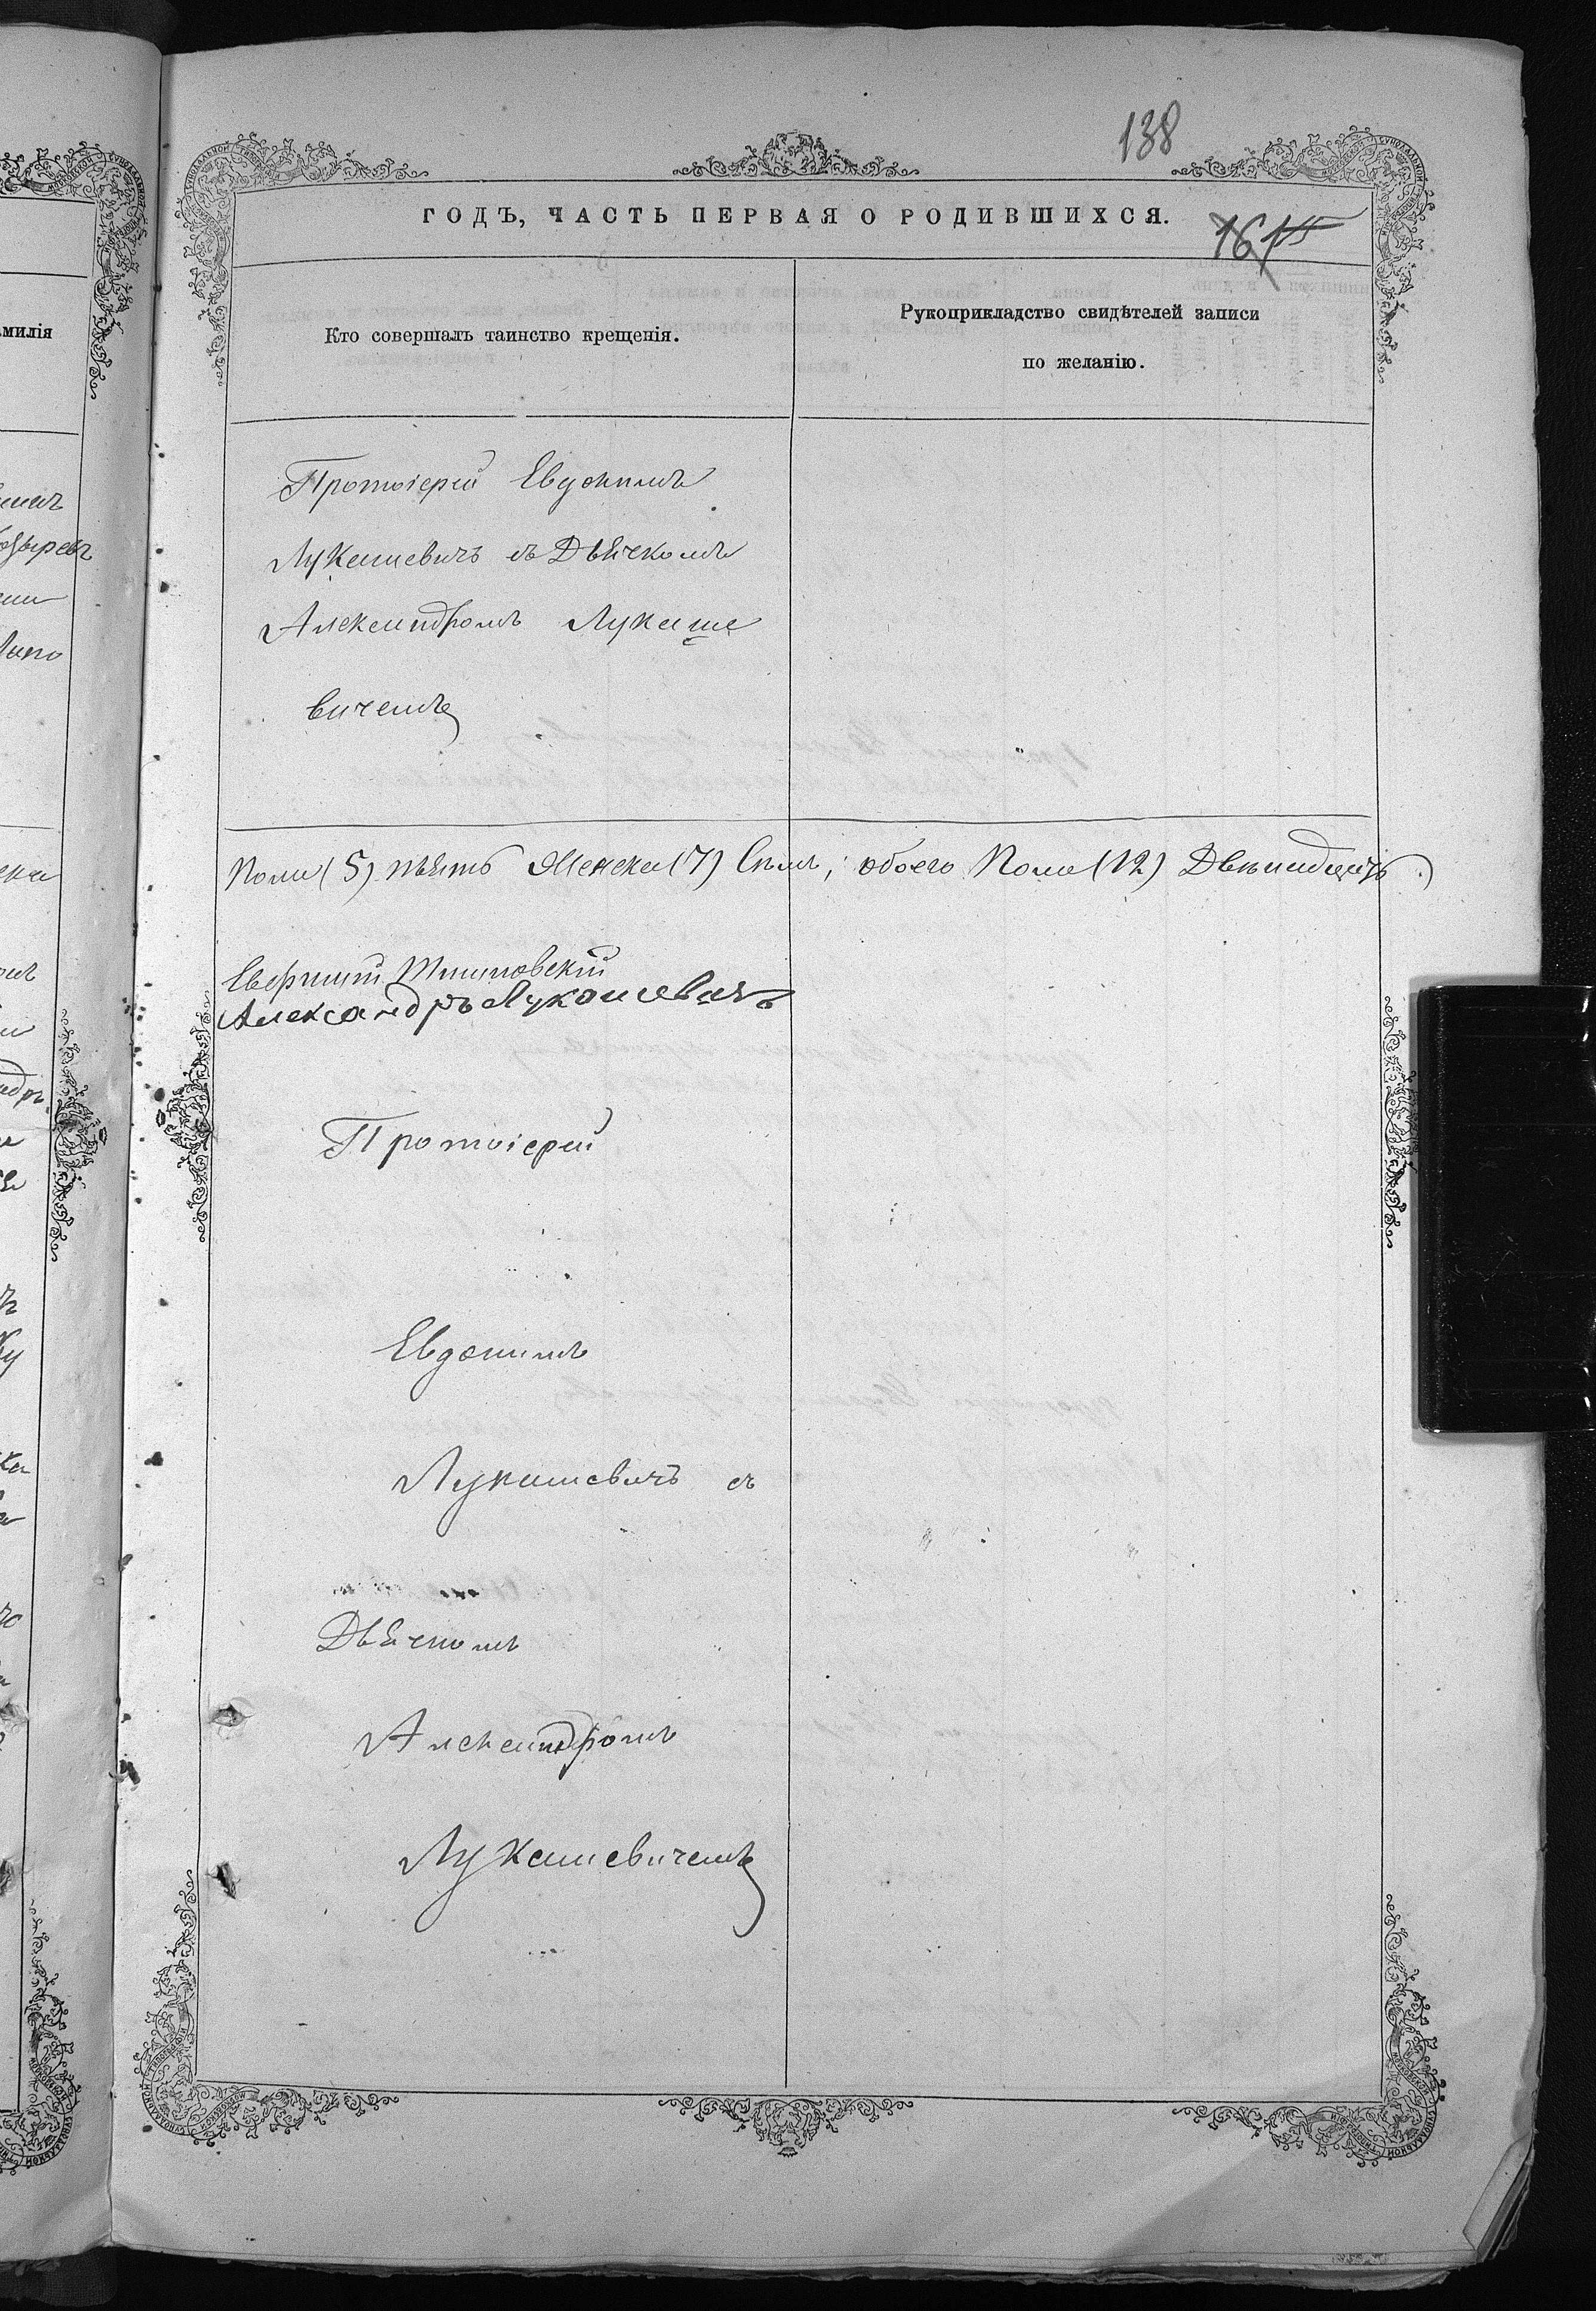 138
ГОДЪ, ЧАСТЬ ПЕРВАЯ О РОДИВШИХСЯ.
161
Кто совершалъ таинство крещенія.
Рукоприкладство свидѣтелей записи
по желанію.
милія
Протоіерей Евдокимъ
Лукашевичъ съ Дьячкомъ
Александромъ Лукаше
вичемъ
Пола (5) пять Женска (7) Семь; обоего Пола (12) Двѣнадцать
Александръ Лукашевичъ
Протоіерей
Евдокимъ
Лукашевичъ съ
Дьячкомъ
Александромъ
Лукашевичемъ